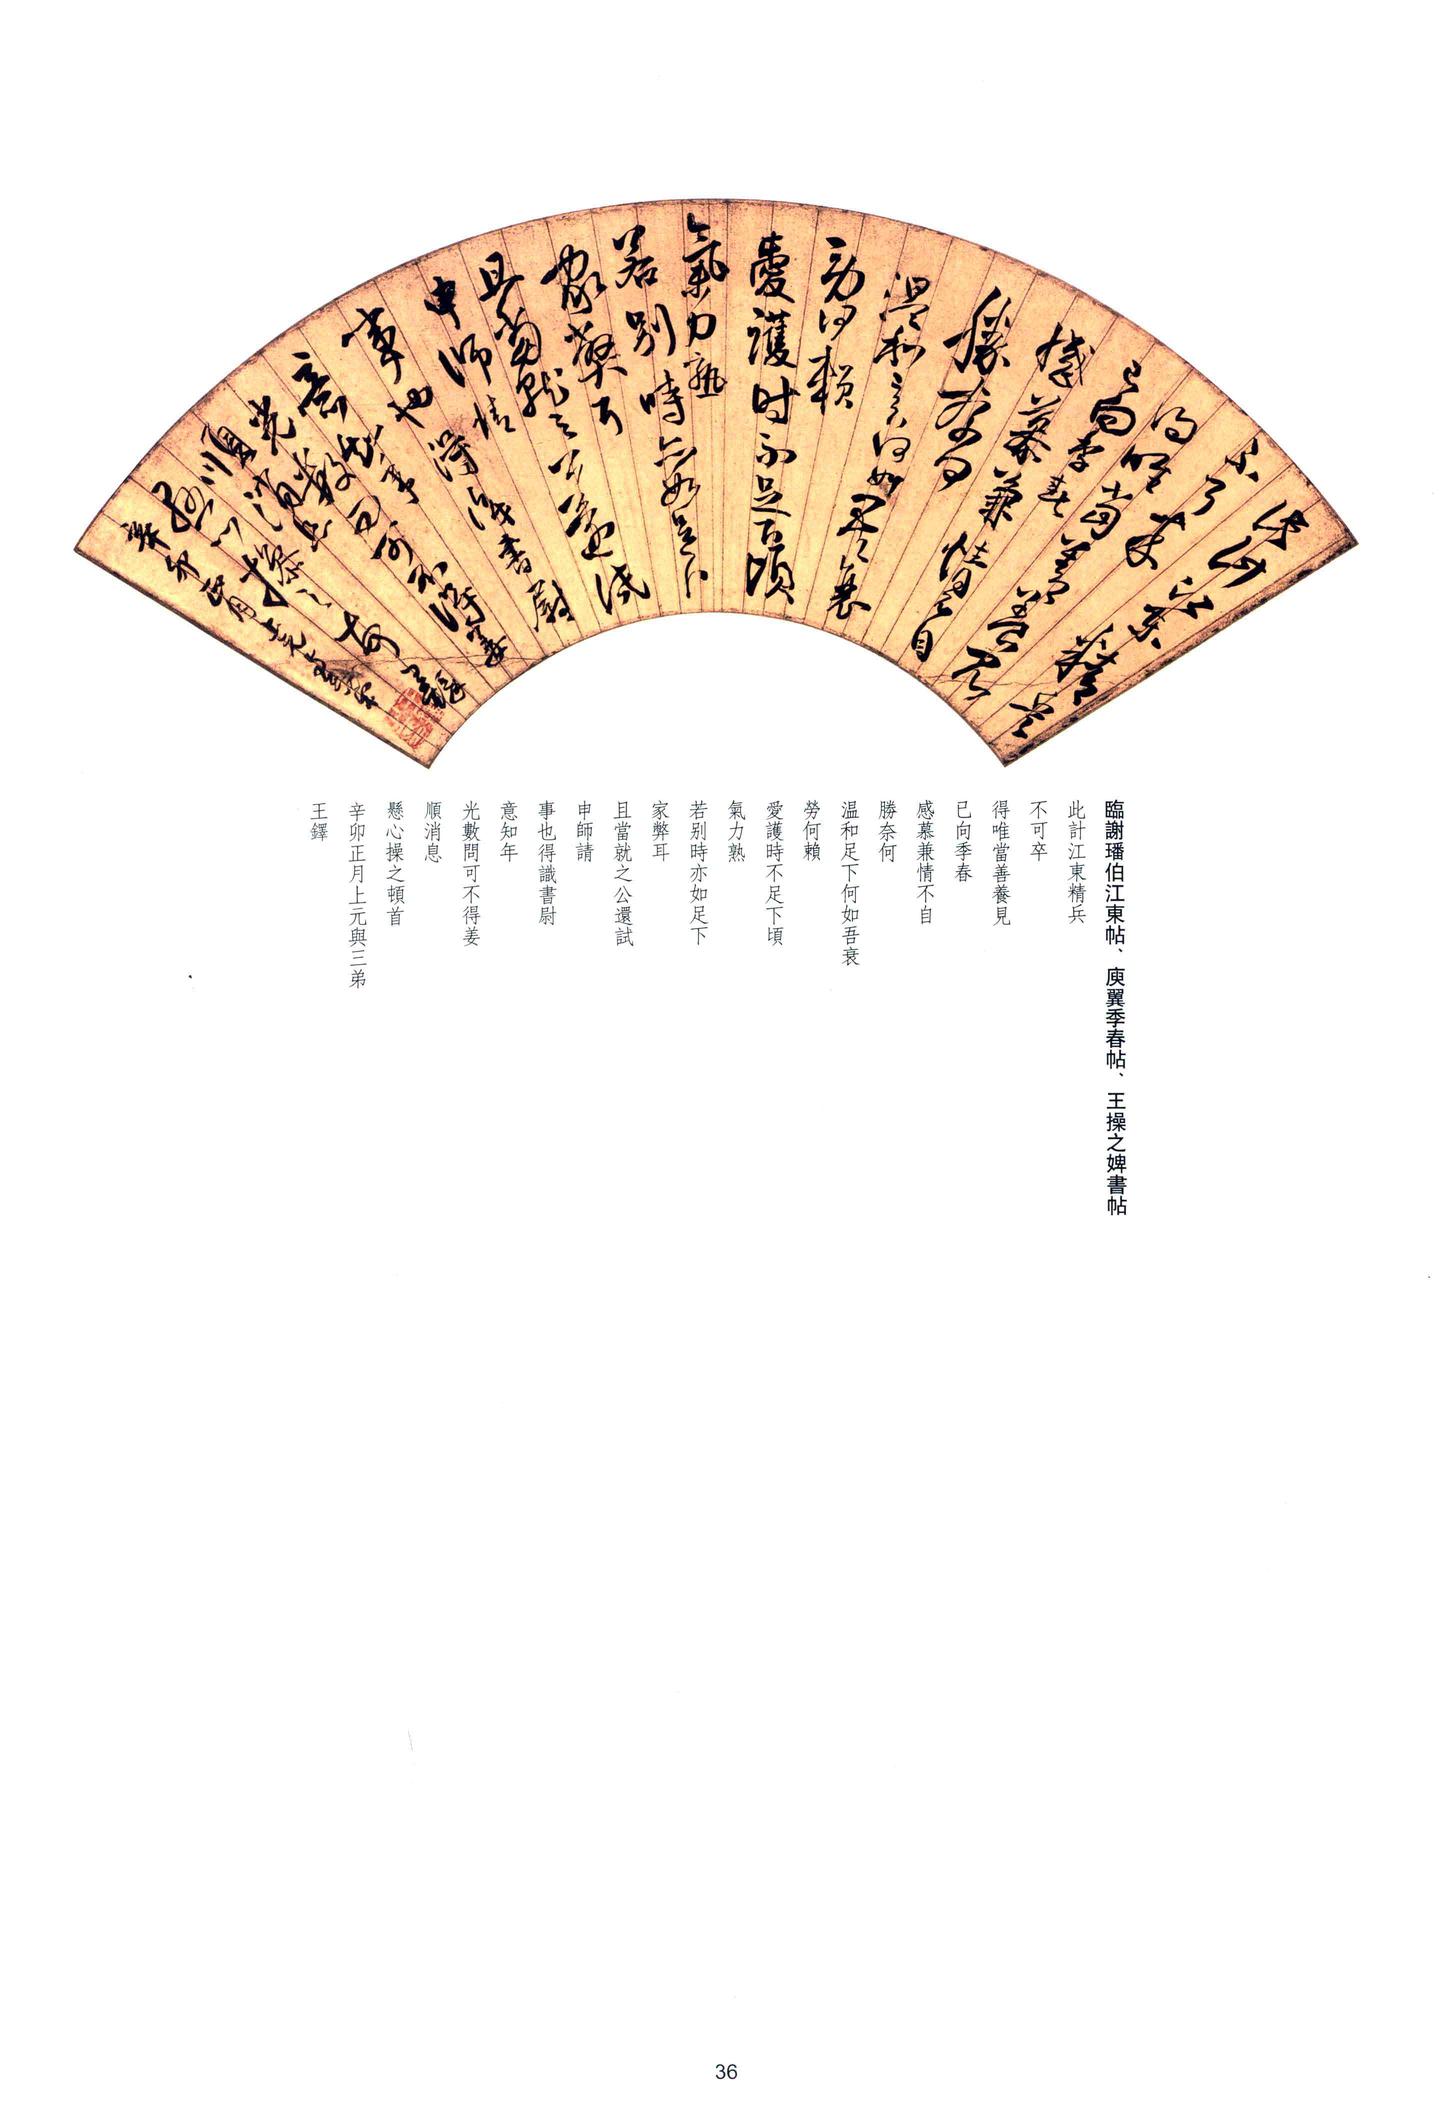 臨謝璠伯江東帖、庾翼季春帖、王操之婢書帖
此計江東精兵
不可卒
得唯當善養見
已向季春
感慕兼情不自
勝奈何
温和足下何如吾衰
勞何賴
愛護時不足下頃
氣力熟
若别時亦如足下
家弊耳
且當就之公還試
申師請
事也得識書尉
意知年
光數問可不得姜
順消息
懸心操之頓首
辛卯正月上元與三弟
王鐸
36